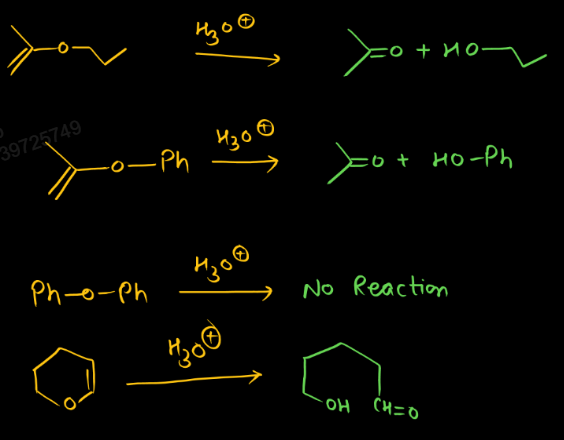 O H₃O⊕ =O + HO
39725749
O–Ph H₃O⊕ =O + HO–Ph
Ph–O–Ph H₃O⊕ No Reaction
H₃O⊕
O OH CH=O